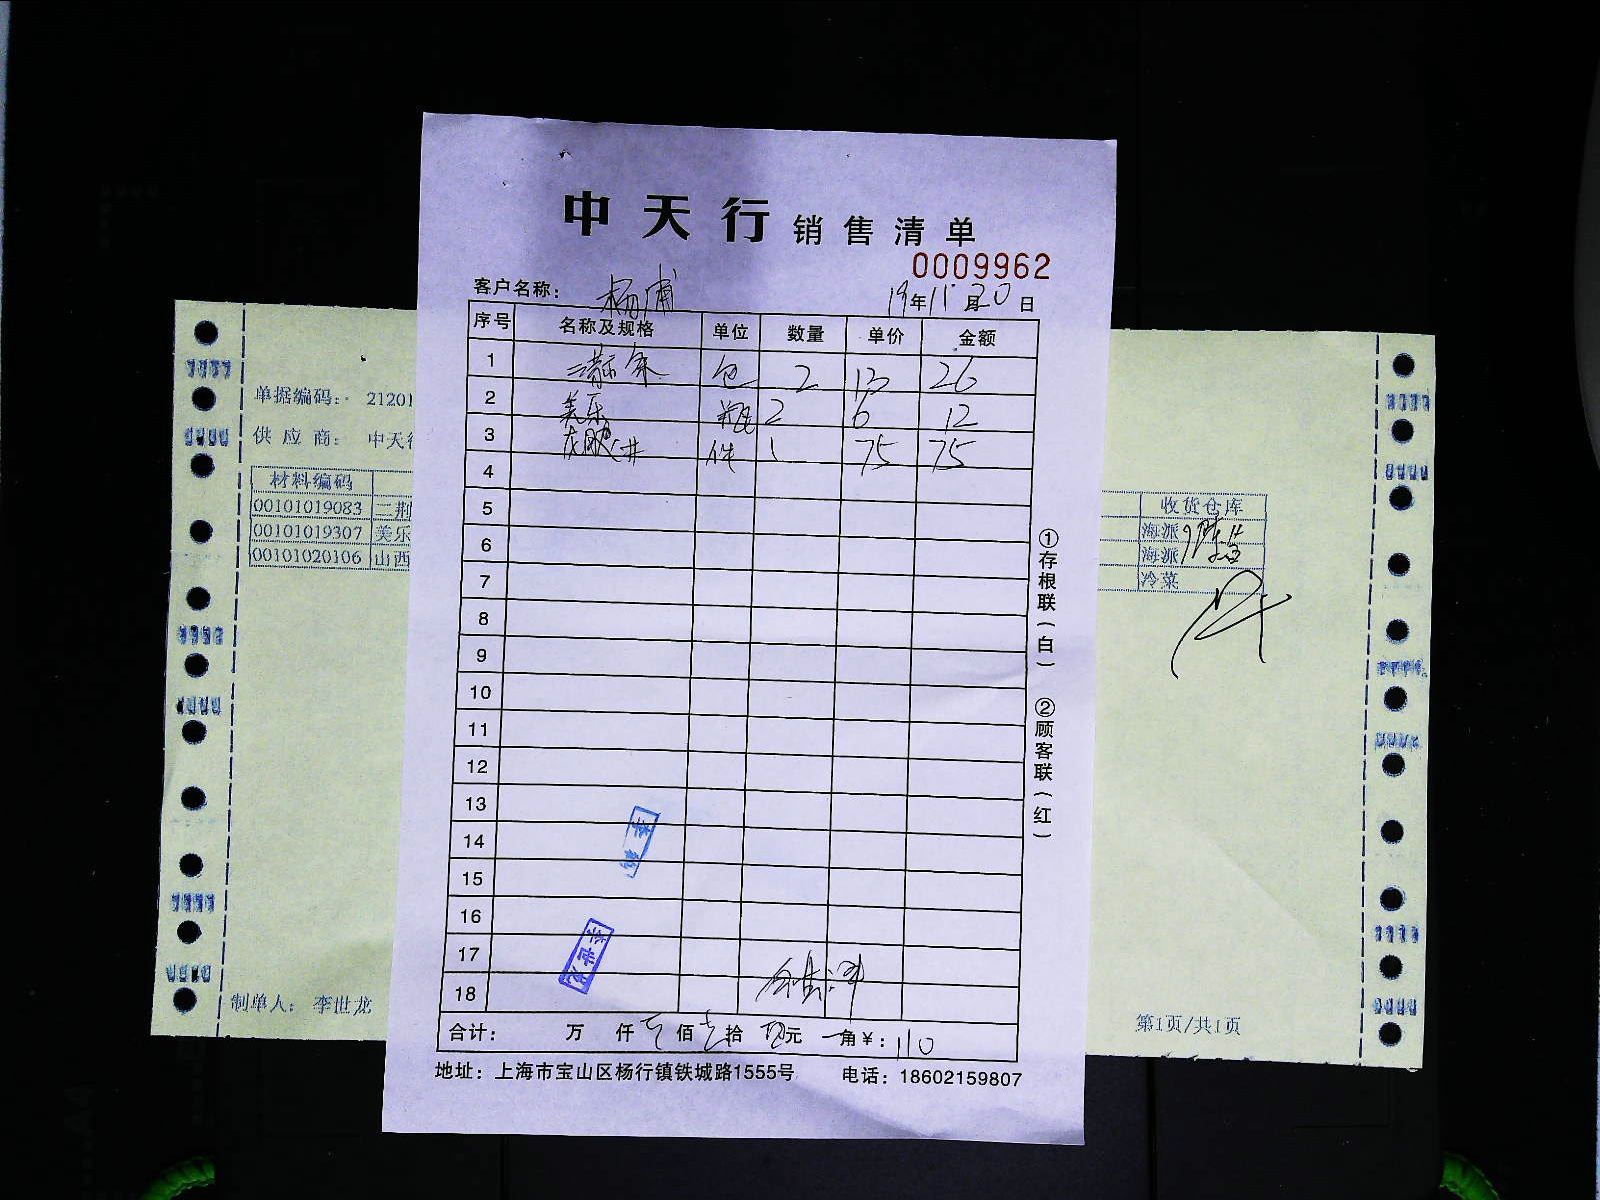 中天行 销售清单
0009962
客户名称: 杨浦 19年11月20日
序号 名称及规格 单位 数量 单价 金额
1 包 2 13 26
2 美乐 瓶 2 6 12
3 件 1 75 75
4
5
6
7
8
9
10
11
12
13
14
15
16
17
18
合计: 万 仟 佰 拾 元 角¥: 110
地址: 上海市宝山区杨行镇铁城路1555号 电话: 18602159807
①存根联(白) ②顾客联(红)
李世龙
单据编码: 21201
供应商: 中天行
材料编码 收货仓库
00101019083 二荆 海派
00101019307 美乐 海派
00101020106 山西 冷菜
制单人: 李世龙 第1页/共1页